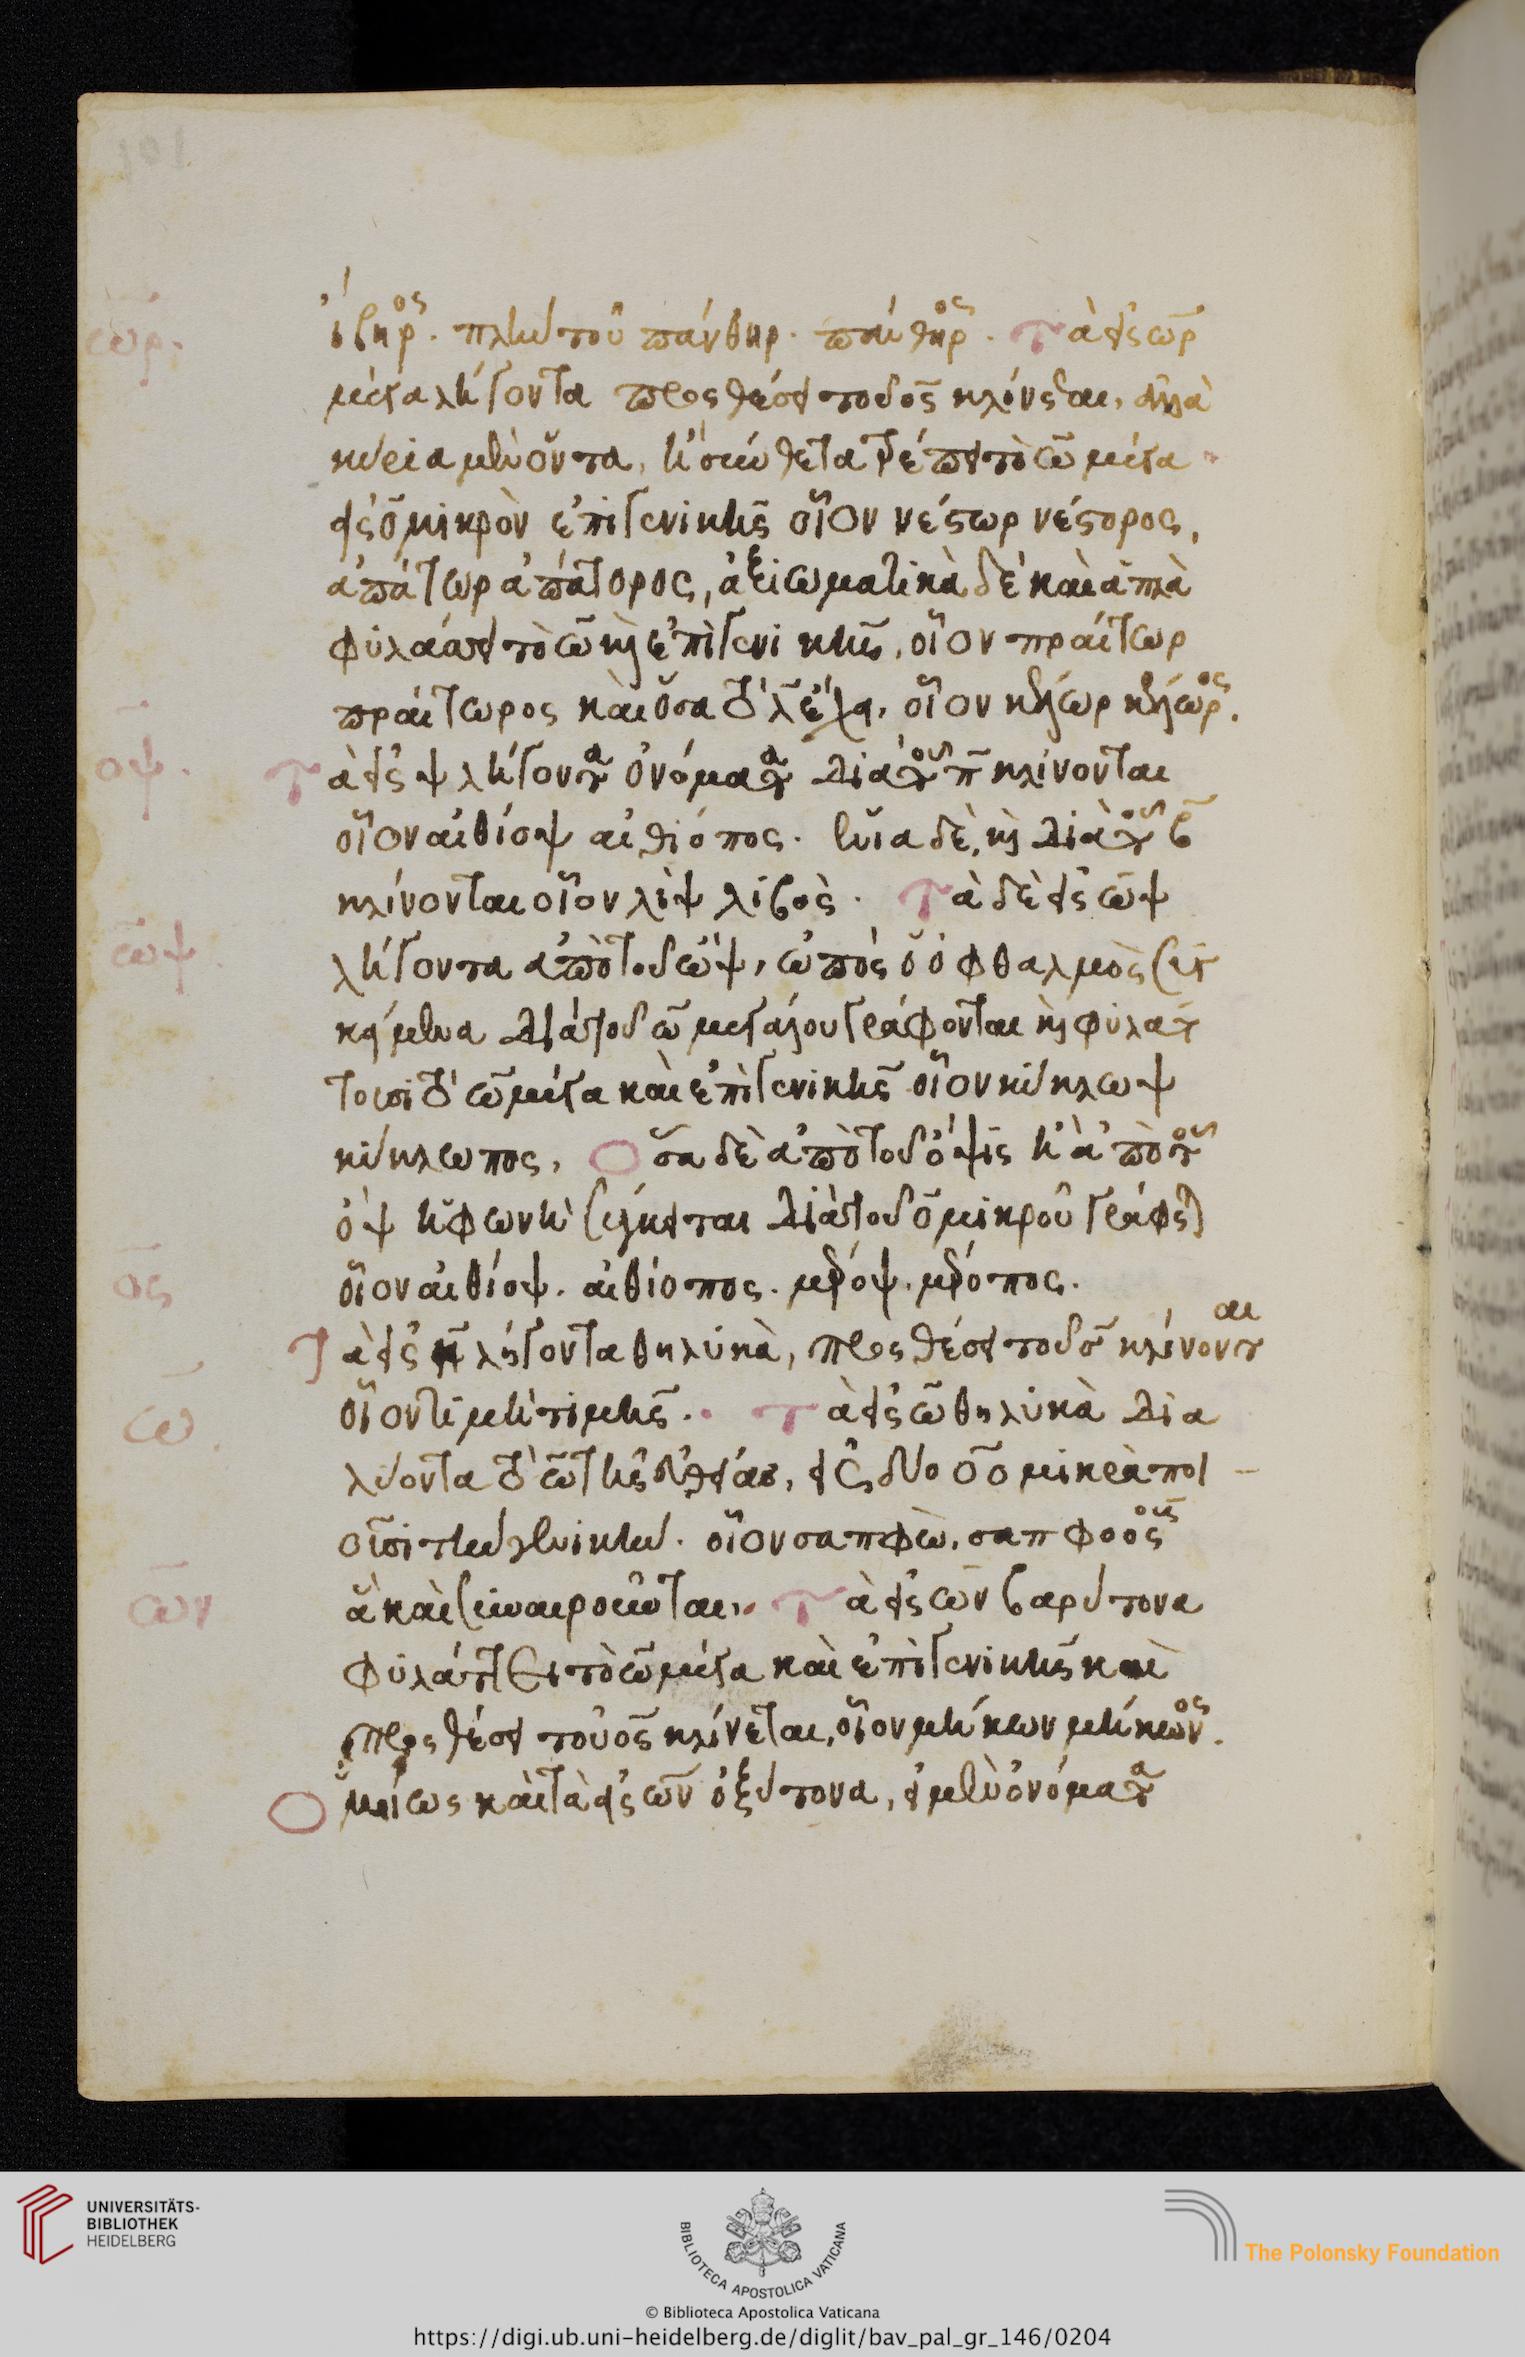 ἴβηρος. πλὴν τοῦ πάνθηρ. πάνθηρος. τὰ εἰς ωρ
ωρ.
μέγα λήγοντα προσθέσει τοῦ ος κλίνεται, ἀλλὰ
κύρια μὲν ὄντα, ἢ σύνθετα τρέπει τὸ ω μέγα
εἰς ο μικρὸν ἐπὶ γενικῆς οἷον νέστωρ νέστορος,
ἀπάτωρ ἀπάτορος, ἀξιωματικὰ δὲ καὶ ἁπλὰ
φυλάσσει τὸ ω καὶ ἐπὶ γενικῆς, οἷον πραίτωρ
πραίτωρος καὶ ὅσα οἷον
οψ.
τὰ εἰς ψ λήγοντα ὀνόματα διὰ τοῦ π κλίνονται
οἷον αἰθίοψ αἰθίοπος. ἔνια δὲ καὶ διὰ τοῦ β
κλίνονται οἷον λὶψ λιβὸς. τὰ δὲ εἰς ωψ
ωψ
λήγοντα ἀπὸ τοῦ ὤψ, ὠπός ὁ ὀφθαλμὸς
διὰ τοῦ ω μεγάλου γράφονται καὶ φυλάτ
τουσι τὸ ω μέγα καὶ ἐπὶ γενικῆς οἷον κύκλωψ
κύκλωπος, ὅσα δὲ ἀπὸ τοῦ ὄψις ἢ ἀπὸ τοῦ
ὂψ ἡ φωνὴ διὰ τοῦ ο μικροῦ γράφεται
οἷον αἰθίοψ. αἰθίοπος. μέροψ. μέροπος.
ος
τὰ εἰς η λήγοντα θηλυκὰ, προσθέσει τοῦ σ κλίνονται
οἷον τιμὴ τιμῆς. τὰ εἰς ω θηλυκὰ δια
ω.
λύοντα τὸ ω τῆς εὐθείας, εἰς δύο ο ο μικρὰ ποι
οῦσι τὴν γενικὴν. οἷον σαπφὼ, σαπφόος
ἃ καὶ συναιροῦνται. τὰ εἰς ων βαρύτονα
ων
φυλάττει τὸ ω μέγα καὶ ἐπὶ γενικῆς καὶ
προσθέσει τοῦ ος κλίνεται, οἷον μήκων μήκωνος.
ὁμοίως καὶ τὰ εἰς ων ὀξύτονα, εἰ μὲν ὀνόματα
UNIVERSITÄTS-
BIBLIOTHEK
HEIDELBERG
BIBLIOTECA APOSTOLICA VATICANA
The Polonsky Foundation
© Biblioteca Apostolica Vaticana
https://digi.ub.uni-heidelberg.de/diglit/bav_pal_gr_146/0204